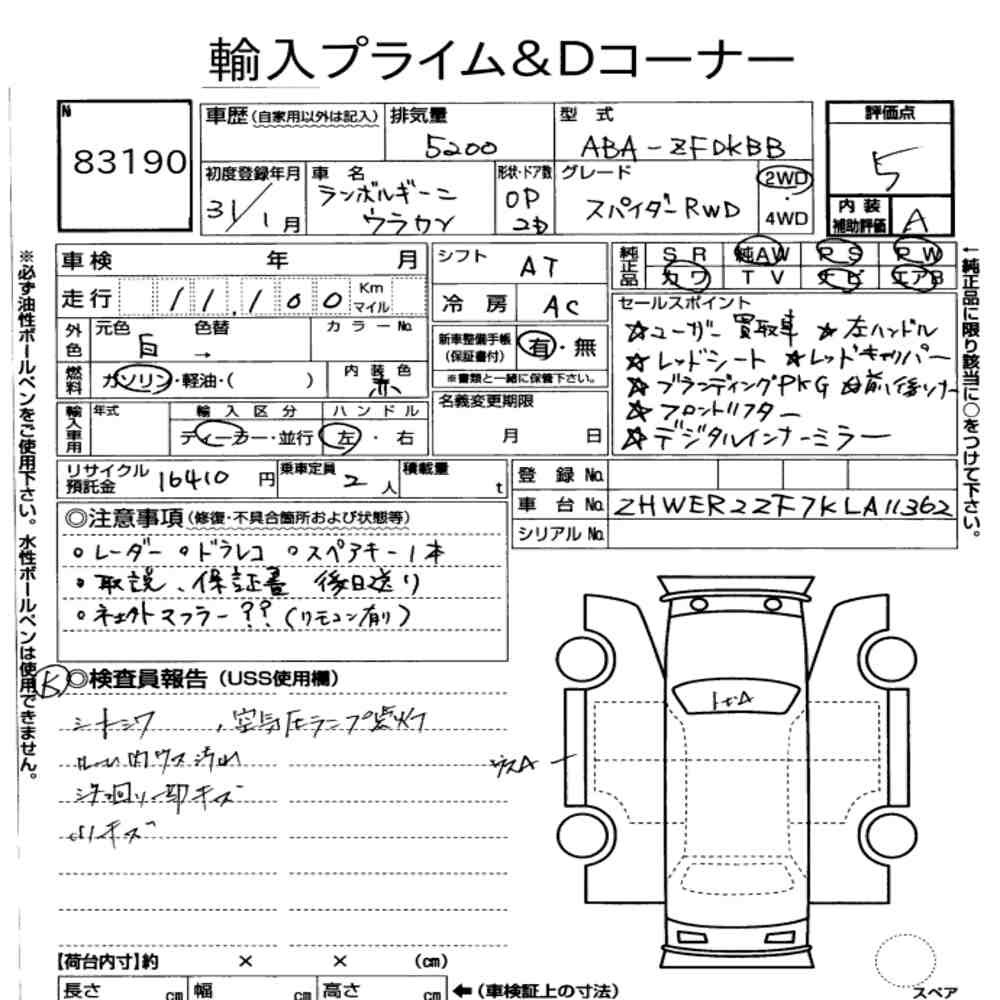 輸入プライム&Dコーナー
N 83190
車歴(自家用以外は記入) 排気量 5200 型式 ABA-ZFDKBB 評価点 5
初度登録年月 31/1月 車名 ランボルギーニ ウラカン 形状・ドア数 OP 2d グレード スパイダーRWD 2WD ・ 4WD 内装補助評価 A
車検 年 月
走行 11,100 Km マイル
シフト AT
冷房 AC
純正品 SR 純AW PS PW
カワ TV ナビ エアB
外色 元色 白 色替 → カラーNo.
燃料 ガソリン・軽油・( ) 内装色 赤
新車整備手帳(保証書付) 有・無
※書類と一緒に保管下さい。
輸入車用 年式 輸入区分 ディーラー・並行 ハンドル 左・右
名義変更期限 月 日
セールスポイント
☆ユーザー買取車 ☆左ハンドル
☆レッドシート ☆レッドキャリパー
☆ブランディングPKG ☆前後ソナー
☆フロントリフター
☆デジタルインナーミラー
リサイクル預託金 16410円 乗車定員 2人 積載量 t
登録No.
車台No. ZHWER2ZF7KLA11362
シリアルNo.
◎注意事項(修復・不具合箇所および状態等)
○レーダー ○ドラレコ ○スペアキー1本
○取説、保証書 後日送り
○ネェクトマフラー??(リモコン有り)
K ◎検査員報告(USS使用欄)
シートシワ、空気圧ランプ点灯
ルーム内ウス汚れ
キズ
キズ
トビA
ウスA
【荷台内寸】約 × × (cm)
長さ cm 幅 cm 高さ cm ←(車検証上の寸法)
スペア
※必ず油性ボールペンをご使用下さい。水性ボールペンは使用できません。
←純正品に限り該当に○をつけて下さい。